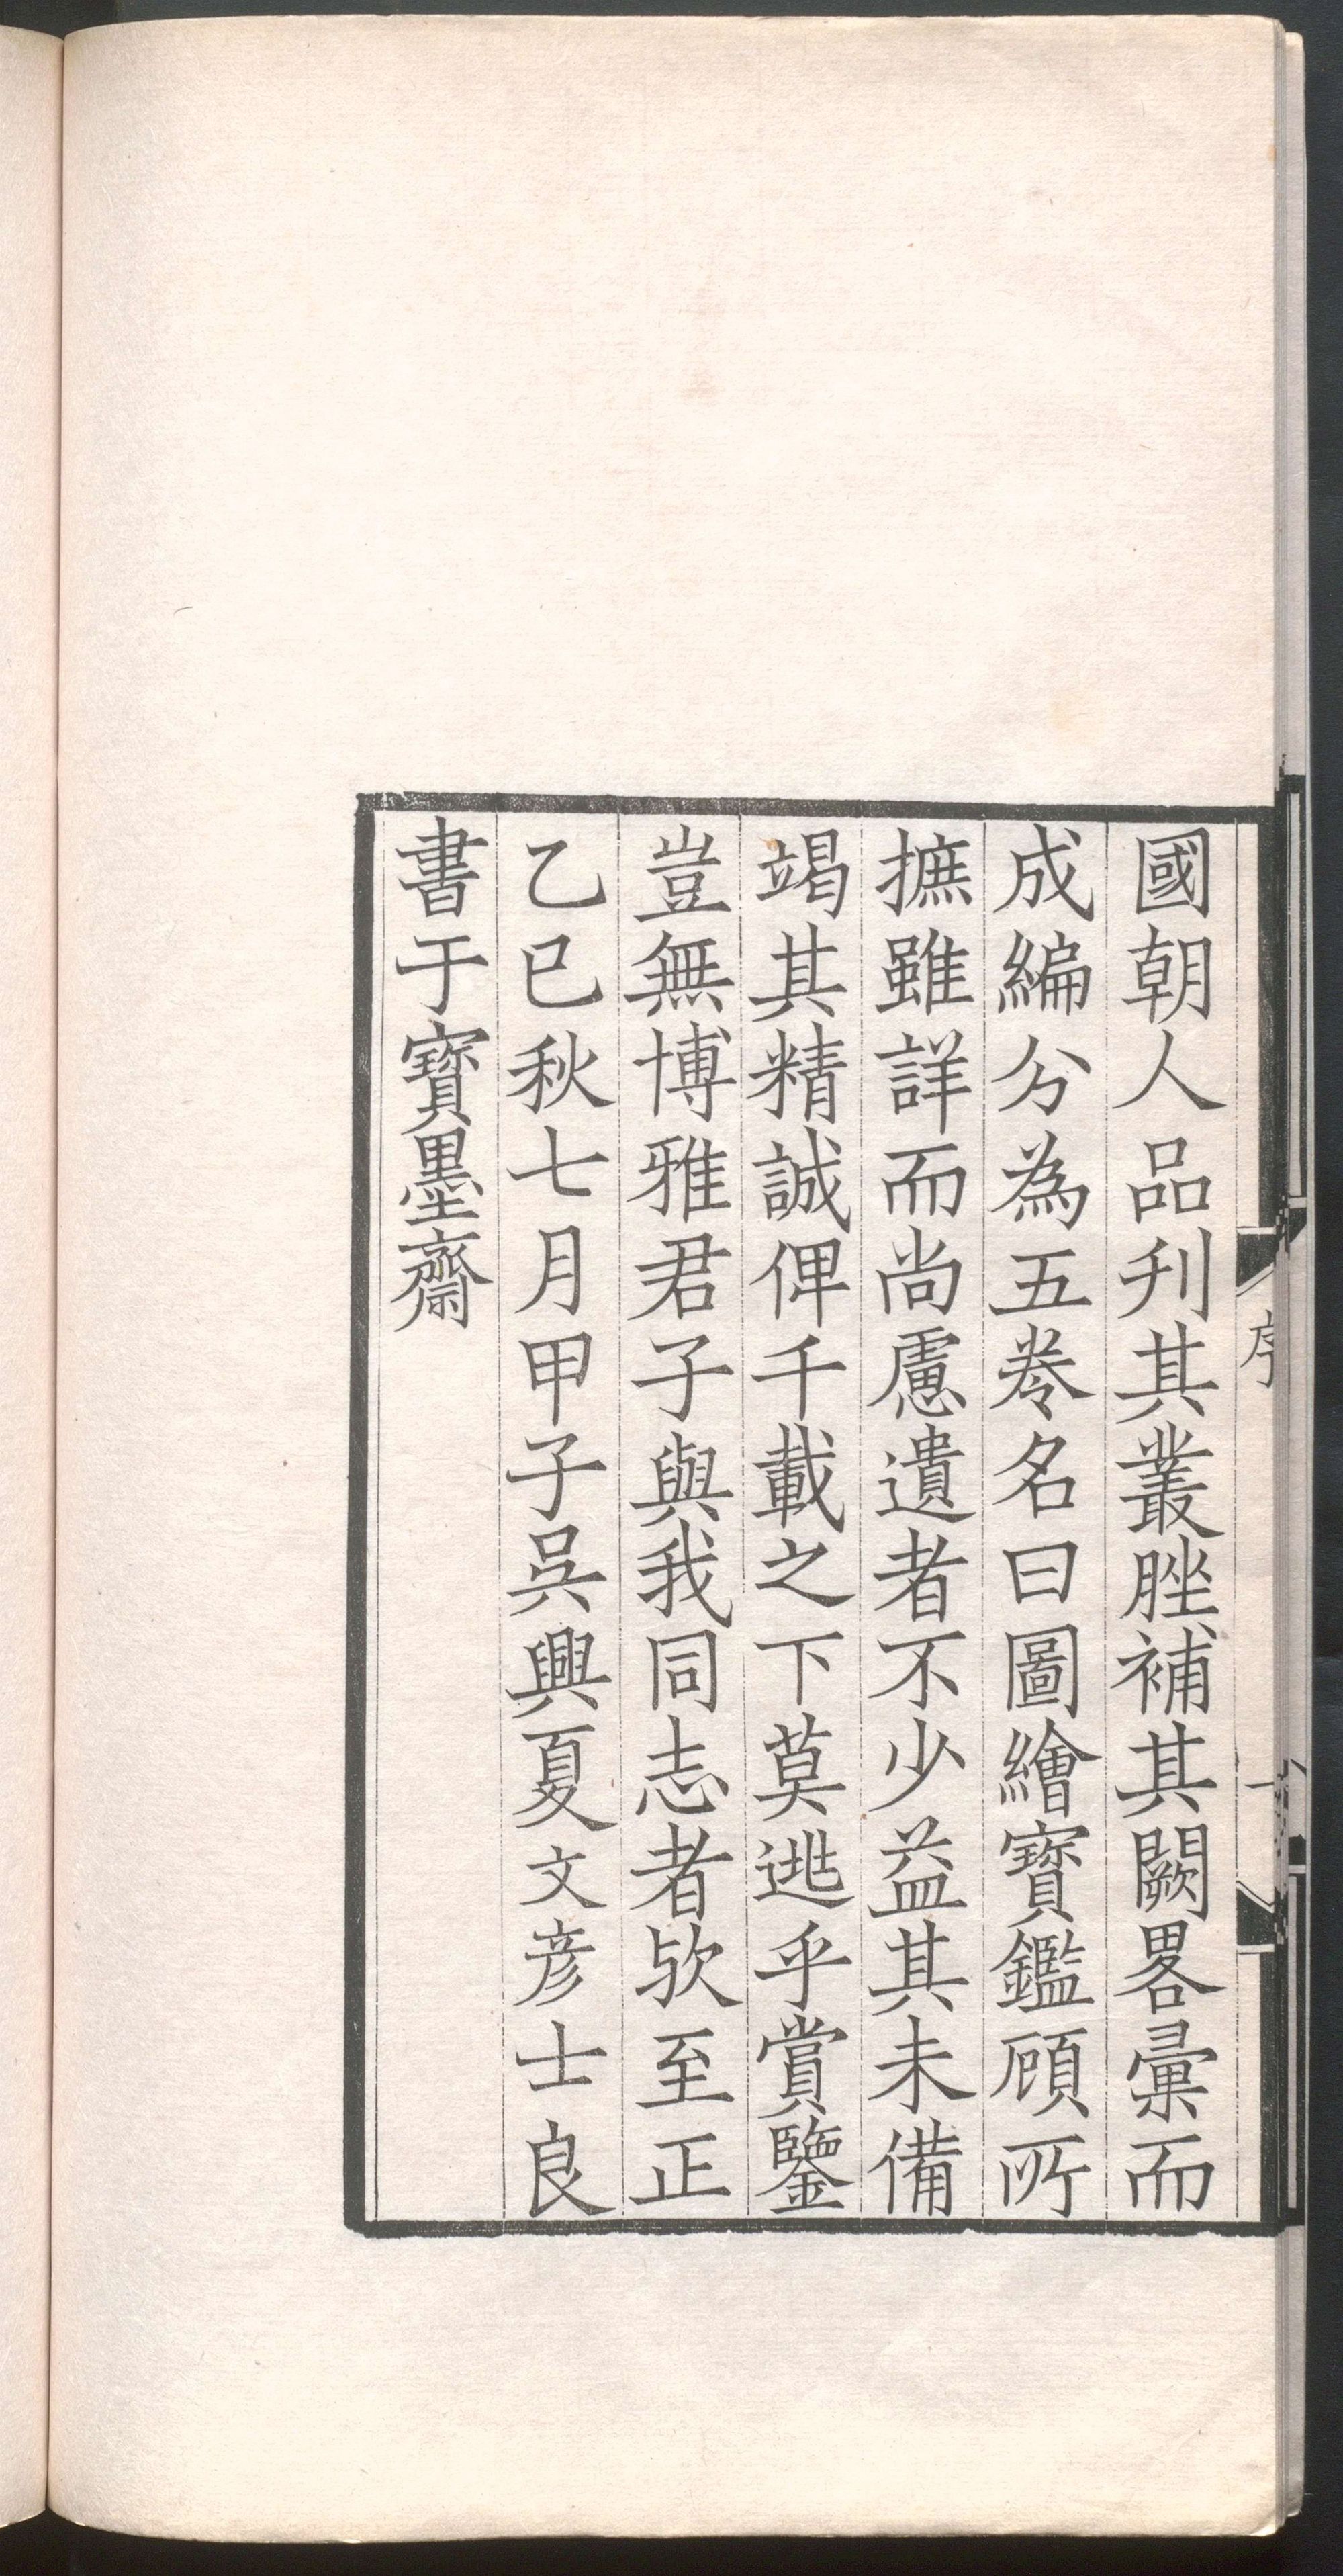 國朝人品刋其叢脞補其闕畧彙而
成編分為五卷名曰圖繪寶鑑顧所
摭雖詳而尚慮遺者不少益其未備
竭其精誠俾千載之下莫逃乎賞鑒
豈無博雅君子與我同志者歟至正
乙巳秋七月甲子吳興夏文彥士良
書于寶墨齋
序